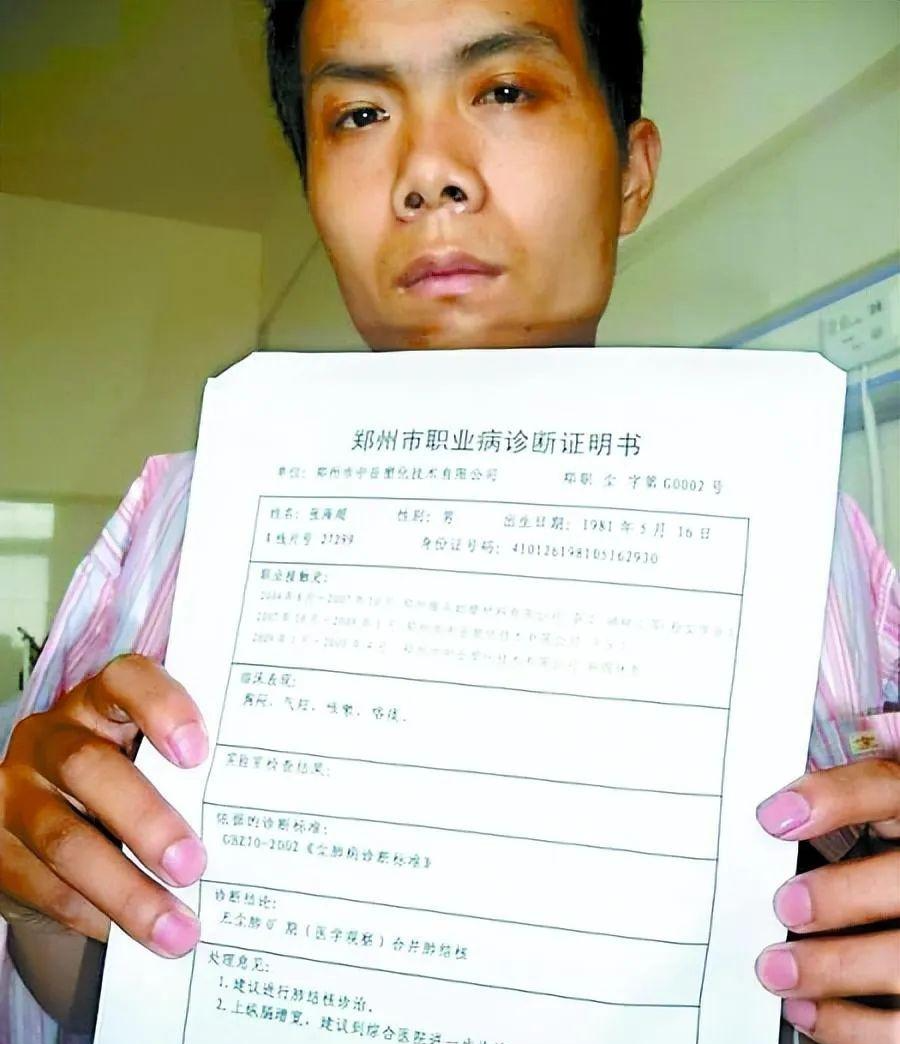 郑州市职业病诊断证明书
单位：郑州市中岳塑化技术有限公司 郑职 尘 字第G0002号
姓名：张海超 性别：男 出生日期：1981年5月16日
X线片号 27299 身份证号码：410126198105162930
职业接触史：
2007年10月-2008年1月 郑州市中岳塑化技术有限公司
郑州市中岳塑化技术有限公司
临床表现：
胸闷、气短、咳嗽、咯痰。
实验室检查结果：
依据的诊断标准：
GBZ70-2002《尘肺病诊断标准》
诊断结论：
无尘肺0⁺期（医学观察）合并肺结核
处理意见：
1.建议进行肺结核诊治。
2.上纵膈增宽，建议到综合医院进一步